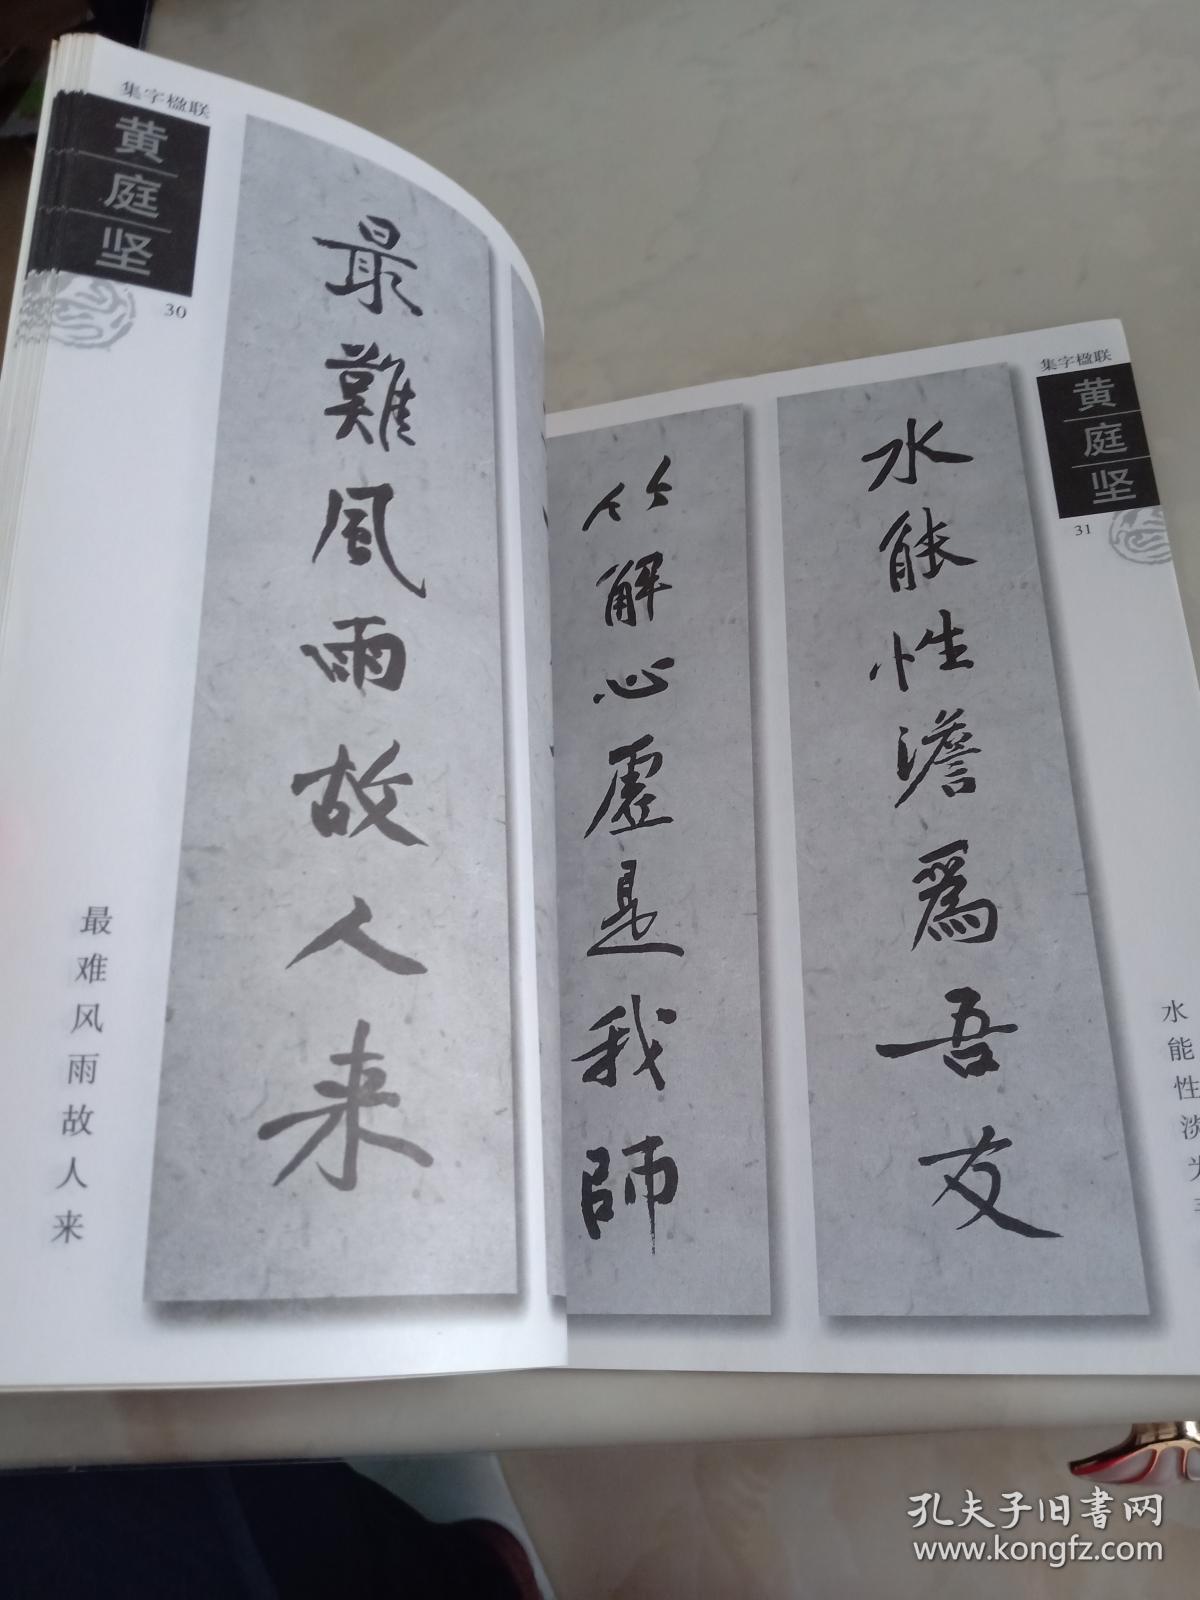 集字楹联
黄庭坚
30
最難風雨故人来
最难风雨故人来
集字楹联
黄庭坚
31
水能性澹為吾友
竹解心虚是我師
水能性淡为
孔夫子旧书网
www.kongfz.com